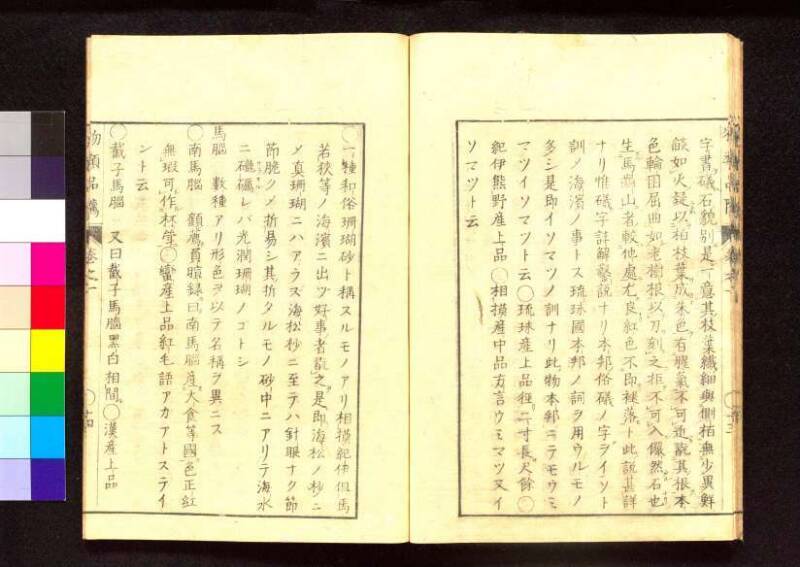 字書礒石貌別是一意其枝漢纖細與側柏無少異鮮
餤如火設以柏枝葉成朱色有腥氣不可近嚴其根本
色輪囷屈曲如老樹根以刀刻之拒不可入儼然石也
生馬鞍山者較他處尤良紅色不即褪落ト此說甚詳
ナリ惟礒字註解繫說ナリ本邦俗礒ノ字ヲイソト
訓メ海濱ノ事トス琉球國本邦ノ詞ヲ用ウルモノ
多シ是即イソマツノ訓ナリ此物本邦ニテモウミ
マツイソマツト云〇琉球產上品徑二寸長尺餘〇
紀伊熊野產上品〇相摸產中品方言ウミマツ又イ
ソマツト云
〇一種和俗珊瑚砂ト稱スルモノアリ相摸紀伊但馬
若狹等ノ海濱ニ出ヅ好事者翫之是即海松ノ杪ニ
メ真珊瑚ニハアラズ海松杪ニ至テハ針眼ナク節
節脆クメ折易シ其折タルモノ砂中ニアリテ海水
ニ礲礪レバ光潤珊瑚ノゴトシ
馬腦 數種アリ形色ヲ以テ名稱ヲ異ニス
〇南馬腦 顧薦負暄錄曰南馬腦產大食等國色正紅
無瑕可作杯斝〇蠻產上品紅毛語アカアトステイ
ント云
〇截子馬腦 又曰截子馬腦黑白相間〇漢產上品
物類品隲 卷之一 〇十四